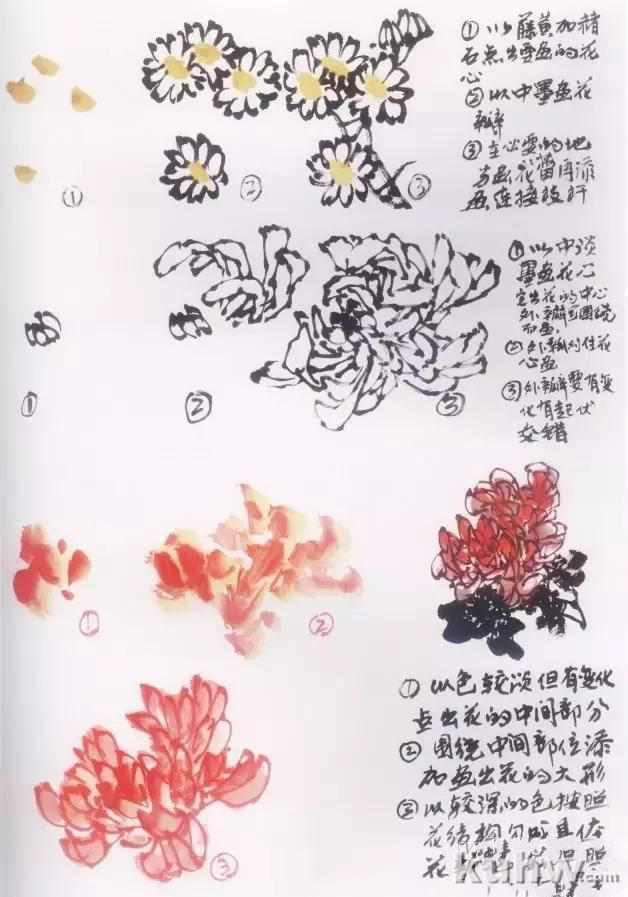 ① 以藤黄加赭
石点出要画的花
心
② 以中墨画花
瓣
③ 在必要的地
方画花蕾再添
画连接枝杆
①
②
③
① 以中淡
墨画花心
定出花的中心
外瓣可围绕
而画
② 外瓣对住花
心画
③ 外瓣要有变
化有起伏
交错
①
②
③
①
②
① 以色较淡但有变化
点出花的中间部分
② 围绕中间部位添
加画出花的大形
③ 以较深的色按照
花结构勾
花
③
kuhw.com